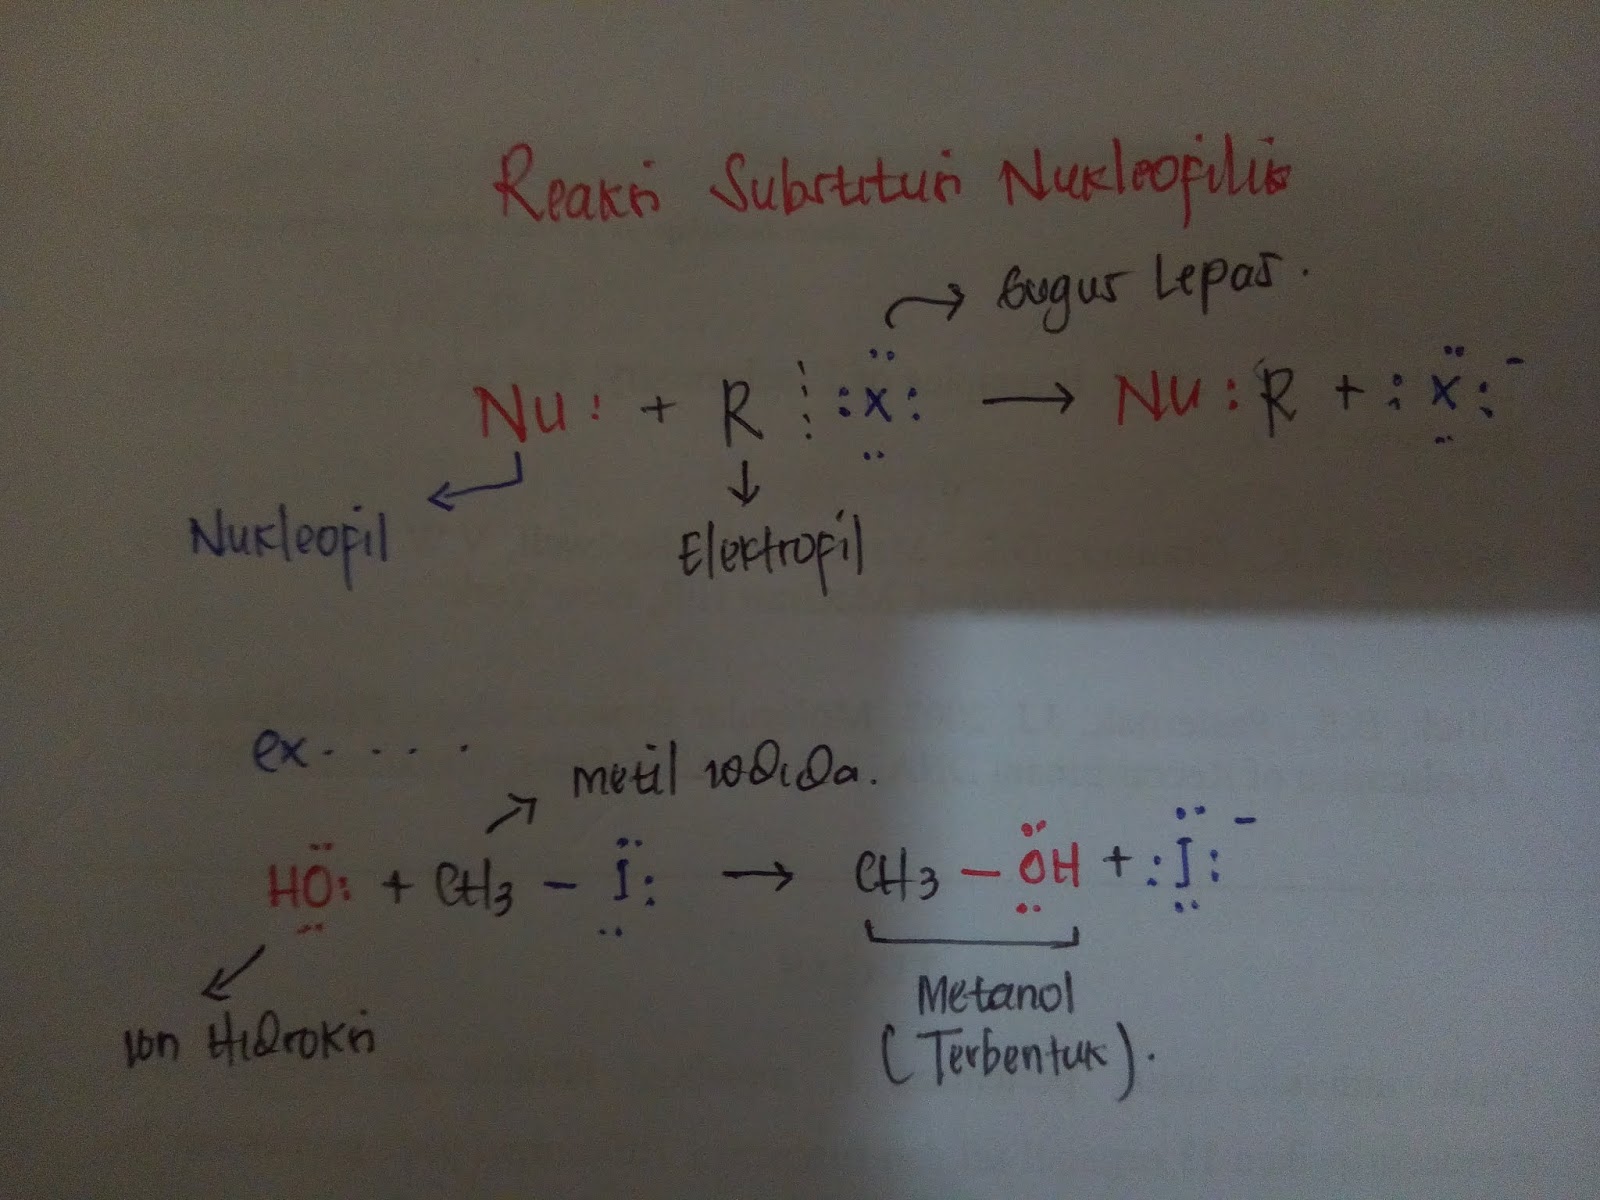 Reaksi Substitusi Nukleofilik
Gugus Lepas.
Nu: + R :X: → Nu:R + :X:⁻
Nukleofil
Elektrofil
ex. . . .
metil iodida.
HO: + CH3 – I: → CH3 – OH + :I:⁻
ion Hidroksi
Metanol
(Terbentuk).